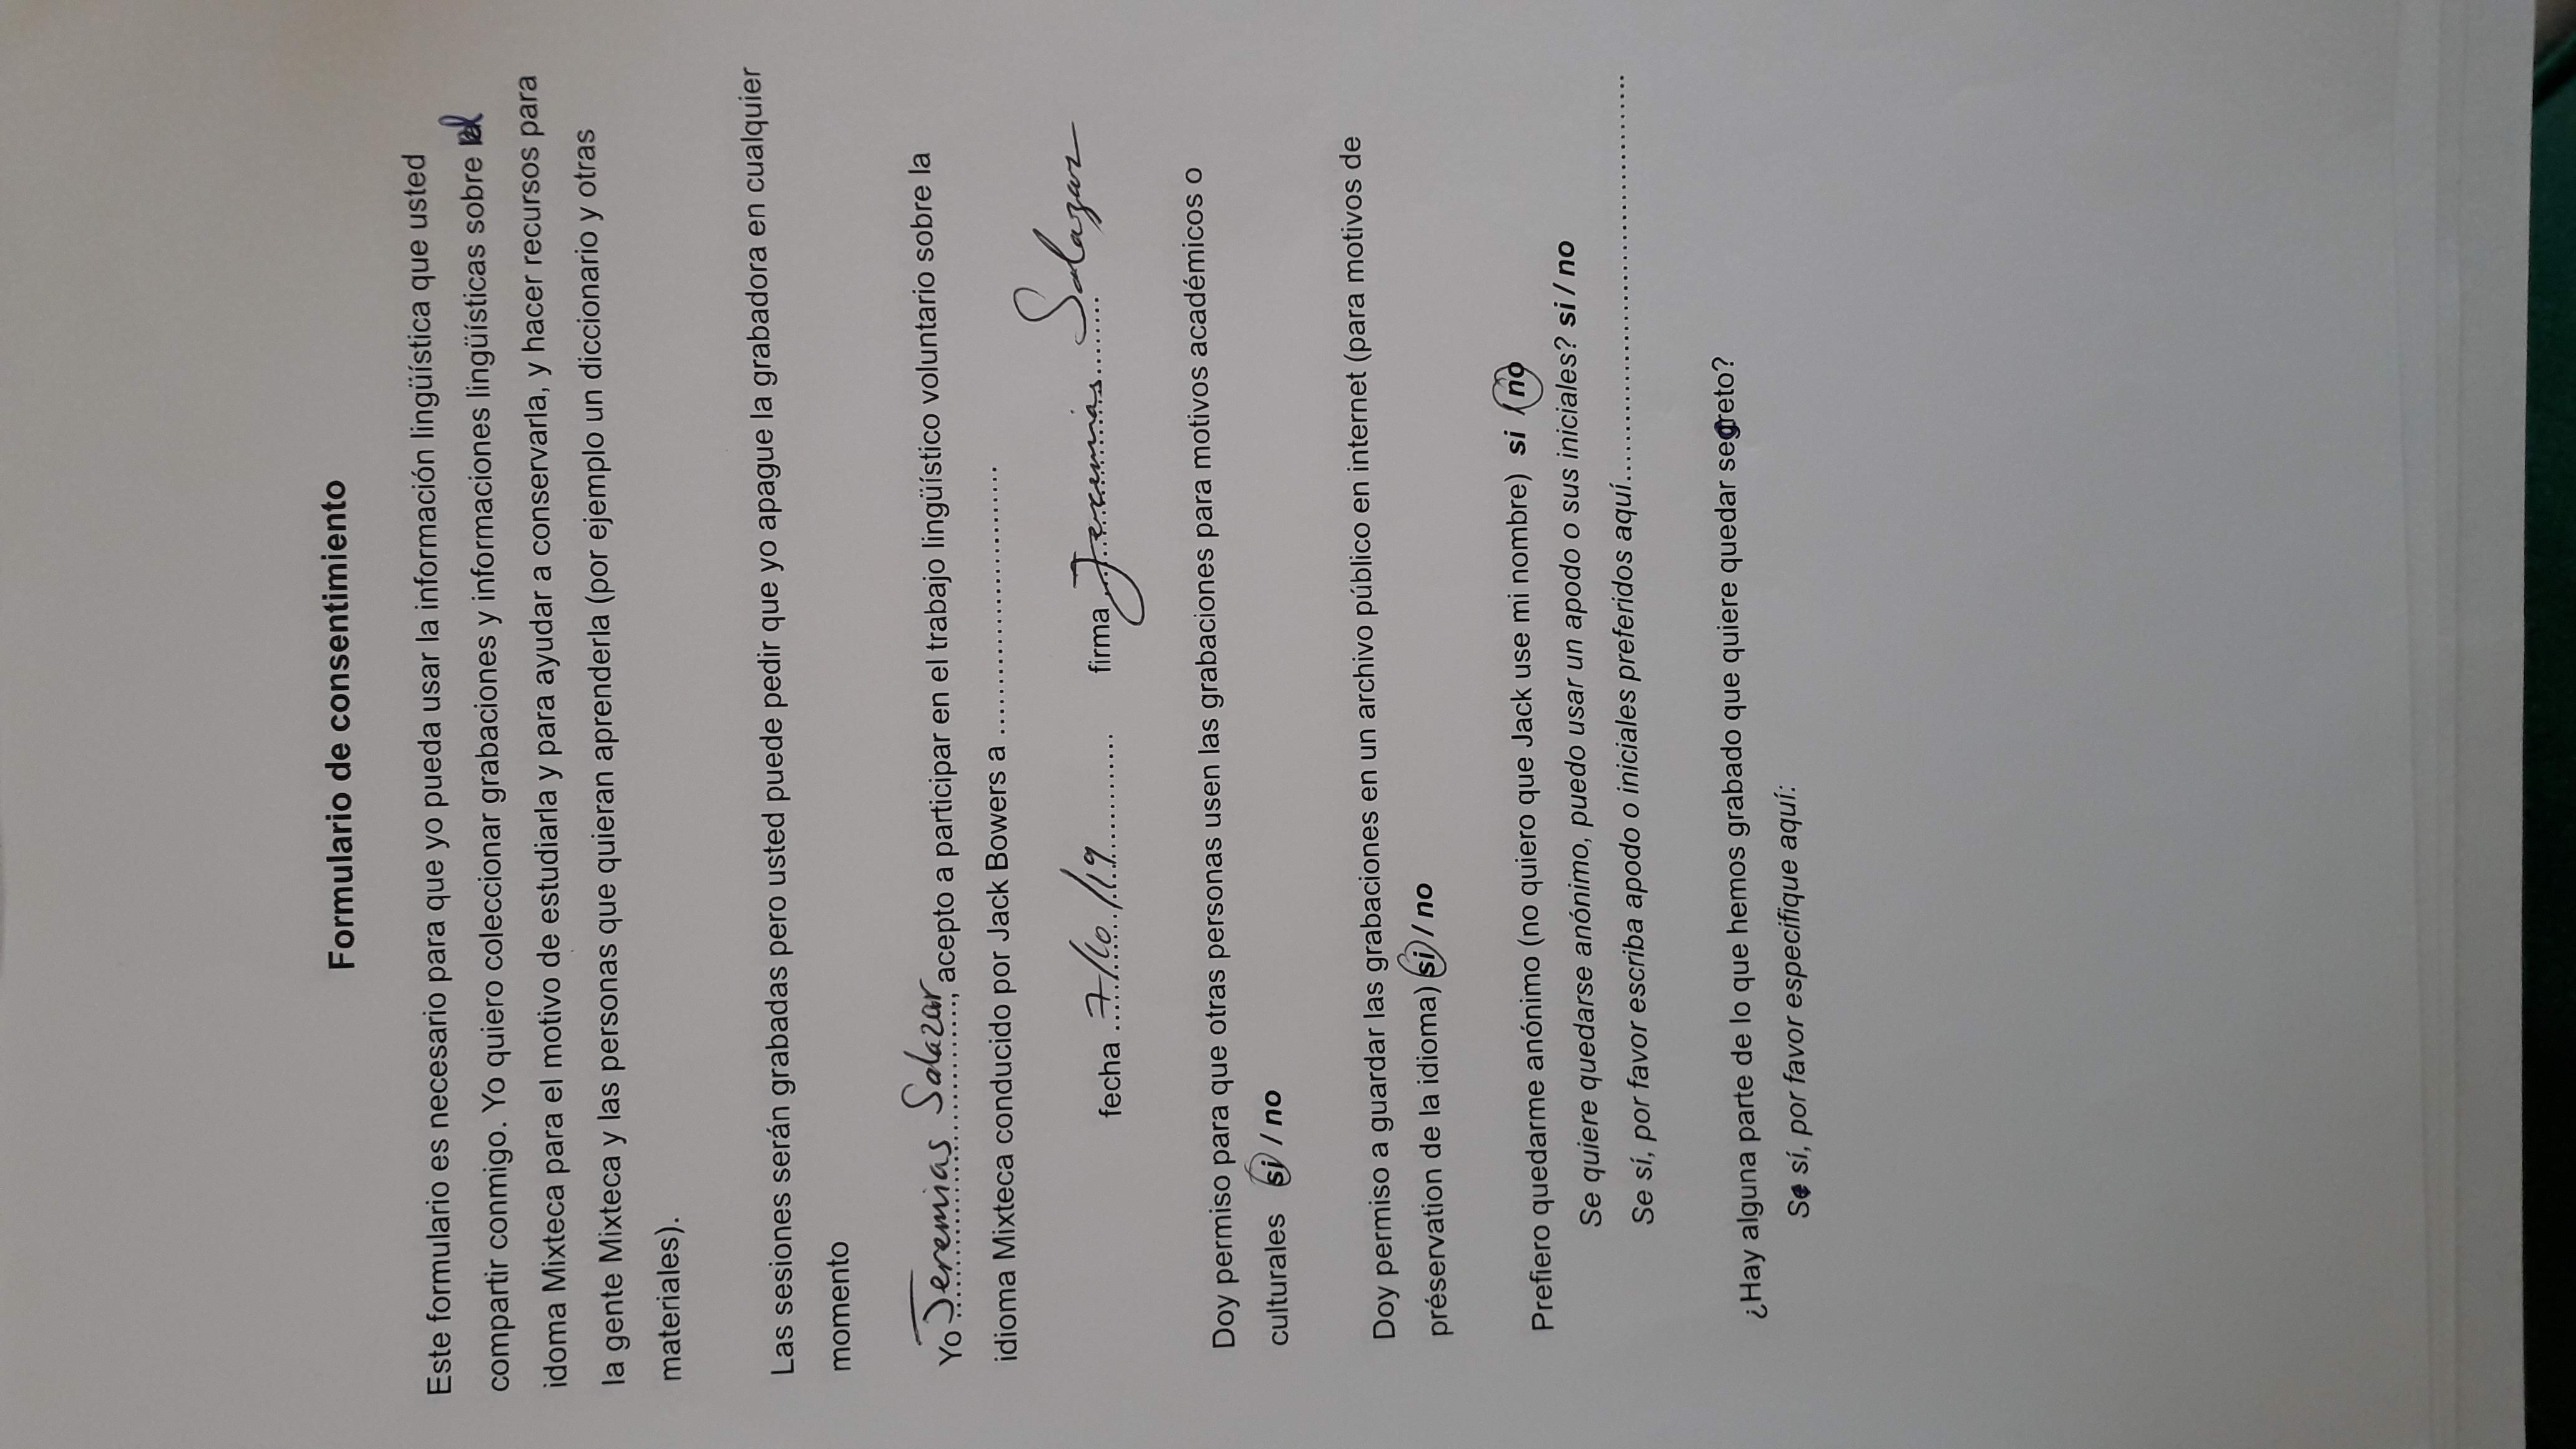 Formulario de consentimiento
Este formulario es necesario para que yo pueda usar la información lingüística que usted
compartir conmigo. Yo quiero coleccionar grabaciones y informaciones lingüísticas sobre el
idoma Mixteca para el motivo de estudiarla y para ayudar a conservarla, y hacer recursos para
la gente Mixteca y las personas que quieran aprenderla (por ejemplo un diccionario y otras
materiales).
Las sesiones serán grabadas pero usted puede pedir que yo apague la grabadora en cualquier
momento
Yo Jeremias Salazar, acepto a participar en el trabajo lingüístico voluntario sobre la
idioma Mixteca conducido por Jack Bowers a ................................
fecha 7/10/19 firma Jeremias Salazar
Doy permiso para que otras personas usen las grabaciones para motivos académicos o
culturales si / no
Doy permiso a guardar las grabaciones en un archivo público en internet (para motivos de
préservation de la idioma) si / no
Prefiero quedarme anónimo (no quiero que Jack use mi nombre) si / no
Se quiere quedarse anónimo, puedo usar un apodo o sus iniciales? si / no
Se sí, por favor escriba apodo o iniciales preferidos aquí................................................
¿Hay alguna parte de lo que hemos grabado que quiere quedar secreto?
Si sí, por favor especifique aquí: